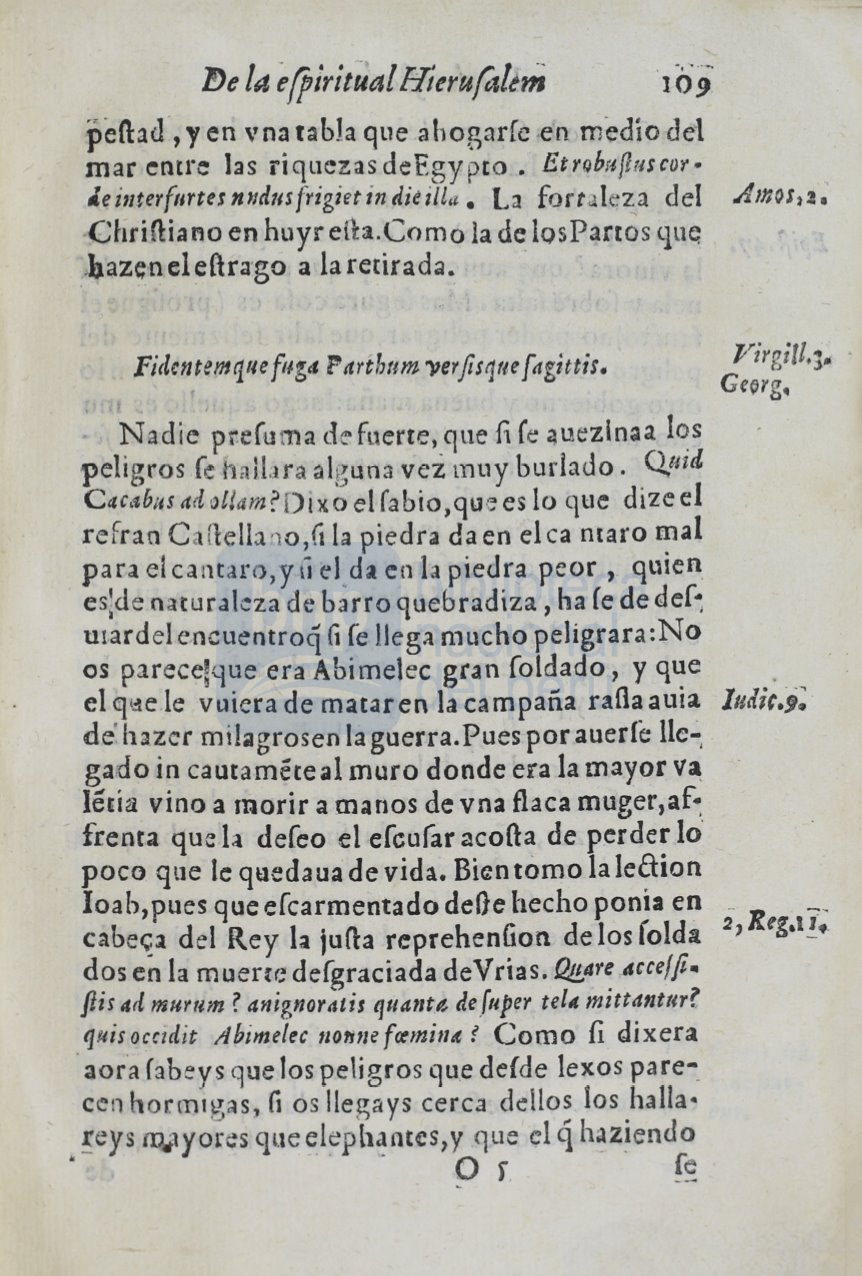 De la eſpiritual Hieruſalem 109
peſtad , y en vna tabla que ahogarſe en medio del
mar entre las riquezas de Egypto . Et robuſtus cor-
de inter furtes nudus frigiet in die illa . La fortaleza del
Amos, 2.
Chriſtiano en huyr eſta. Como la de los Partos que
hazen el eſtrago a la retirada.
Fidentemque fuga Parthum verſisque ſagittis.
Virgill. 3.
Georg.
Nadie preſuma de fuerte, que ſi ſe auezina a los
peligros ſe hallara alguna vez muy burlado . Quid
Cacabus ad ollam? Dixo el ſabio, que es lo que dize el
refran Caſtellano, ſi la piedra da en el ca ntaro mal
para el cantaro, y ſi el da en la piedra peor , quien
es de naturaleza de barro quebradiza , ha ſe de deſ-
uiar del encuentro q̃ ſi ſe llega mucho peligrara: No
os parece que era Abimelec gran ſoldado , y que
el que le vuiera de matar en la campaña raſſa auia
Iudic. 9.
de hazer milagros en la guerra. Pues por auerſe lle-
gado in cautamẽte al muro donde era la mayor va
lẽtia vino a morir a manos de vna flaca muger, af-
frenta que la deſeo el eſcuſar acoſta de perder lo
poco que le quedaua de vida. Bien tomo la lection
Ioab, pues que eſcarmentado deſte hecho ponia en
2, Reg. 11.
cabeça del Rey la juſta reprehenſion de los ſolda
dos en la muerte deſgraciada de Vrias. Quare acceſſi-
ſtis ad murum ? an ignoratis quanta deſuper tela mittantur?
quis occidit Abimelec nonne fœmina ? Como ſi dixera
aora ſabeys que los peligros que deſde lexos pare-
cen hormigas, ſi os llegays cerca dellos los halla-
reys mayores que elephantes, y que el q̃ haziendo
O 5 ſe